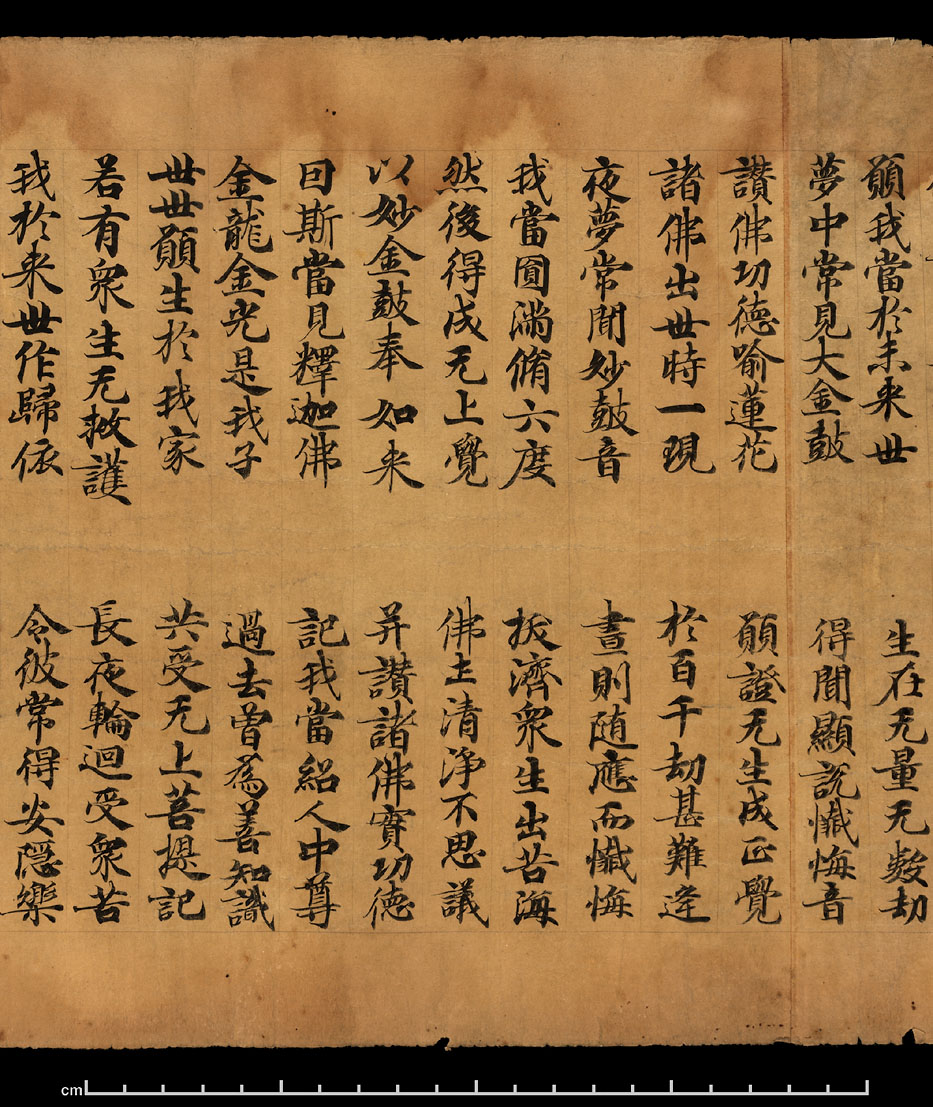 願我當於未来世 生在无量无數劫
夢中常見大金鼓 得聞顯說懺悔音
讚佛功德喻蓮花 願證无生成正覺
諸佛出世時一現 於百千劫甚難逢
夜夢常聞妙鼓音 晝則随應而懺悔
我當圓滿脩六度 拔濟衆生出苦海
然後得成无上覺 佛土清淨不思議
以妙金鼓奉如来 并讚諸佛實功德
回斯當見釋迦佛 記我當紹人中尊
金龍金光是我子 過去曾為善知識
世世願生於我家 共受无上菩提記
若有衆生无救護 長夜輪迴受衆苦
我於来世作歸依 令彼常得安隱樂
cm